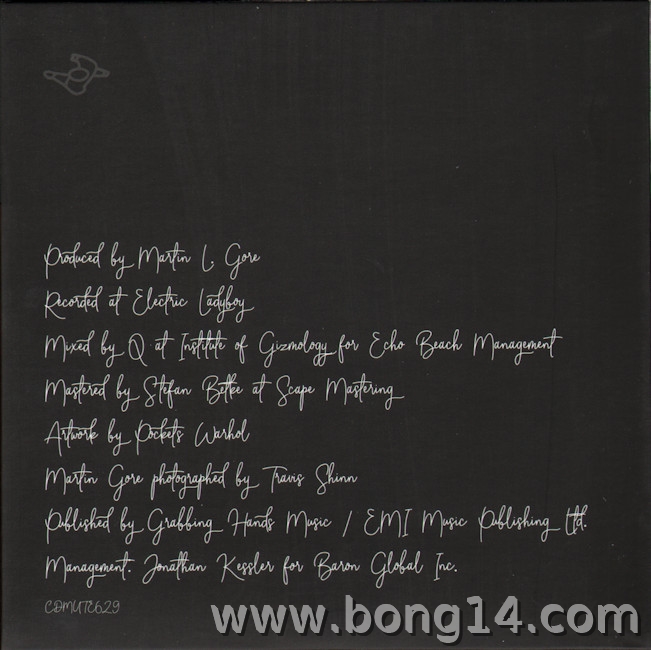 Produced by Martin L Gore
Recorded at Electric Ladyboy
Mixed by Q at Institute of Gizmology for Echo Beach Management
Mastered by Stefan Betke at Scape Mastering
Artwork by Pockets Warhol
Martin Gore photographed by Travis Shinn
Published by Grabbing Hands Music / EMI Music Publishing Ltd.
Management. Jonathan Kessler for Baron Global Inc.
CDMUTE629
www.bong14.com